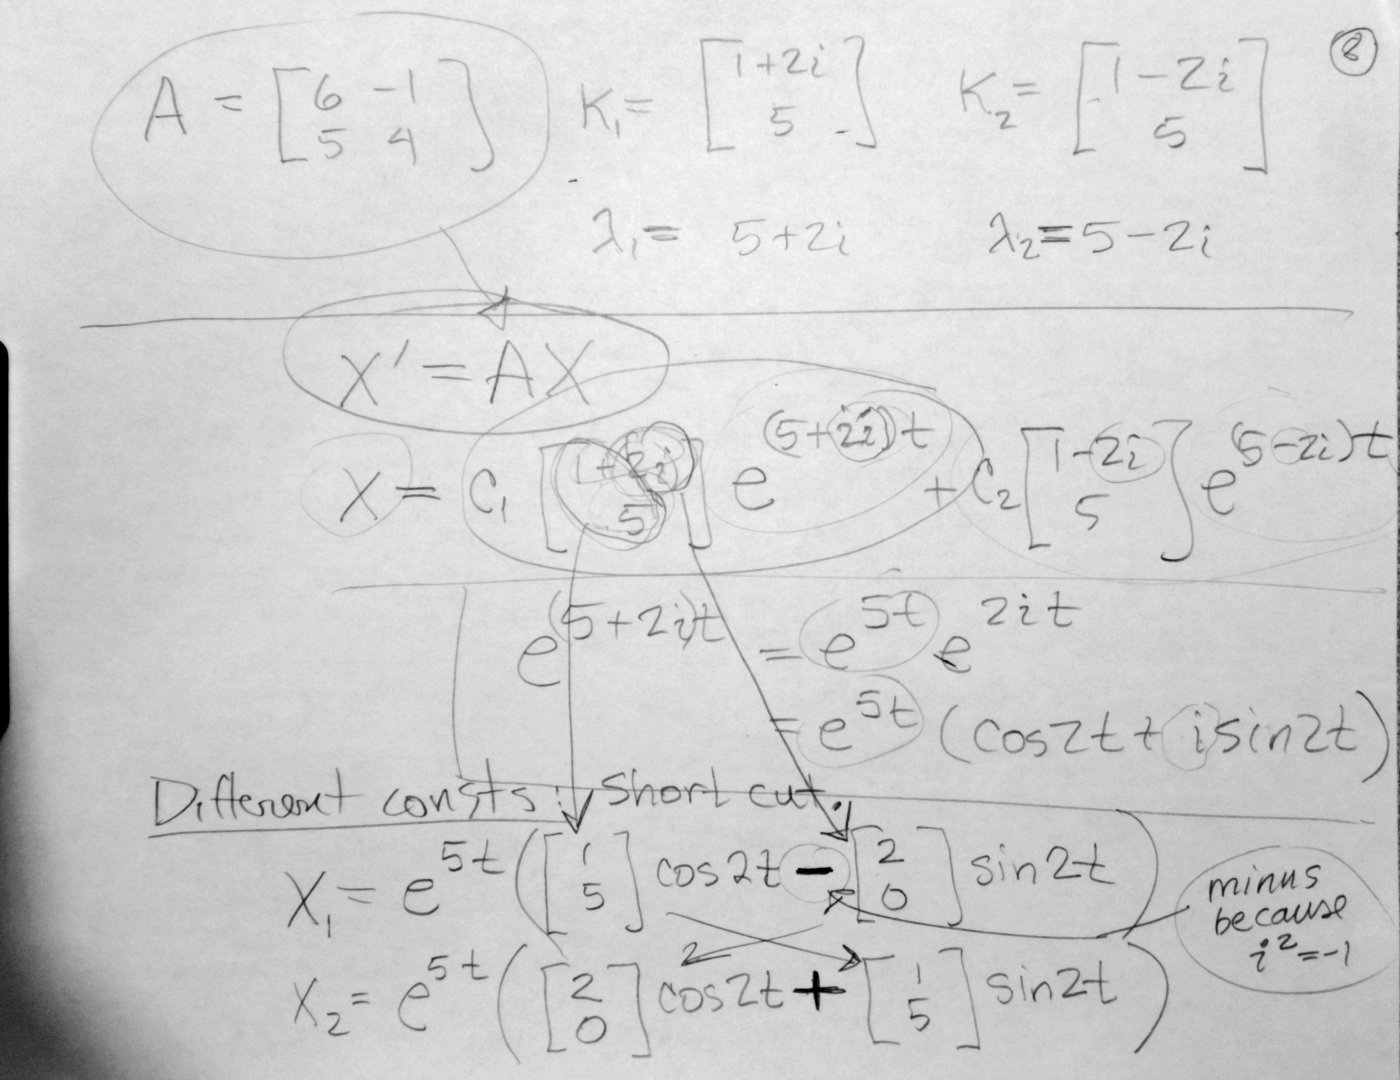 8
A = [6 -1; 5 4] K₁ = [1+2i; 5] K₂ = [1-2i; 5]
λ₁ = 5+2i λ₂ = 5-2i
X' = AX
X = C₁ [1+2i; 5] e^(5+2i)t + C₂ [1-2i; 5] e^(5-2i)t
e^(5+2i)t = e^5t e^2it
= e^5t (cos2t + i sin2t)
Different consts: Short cut.
X₁ = e^5t ([1; 5] cos2t - [2; 0] sin2t)
minus
because
i² = -1
X₂ = e^5t ([2; 0] cos2t + [1; 5] sin2t)